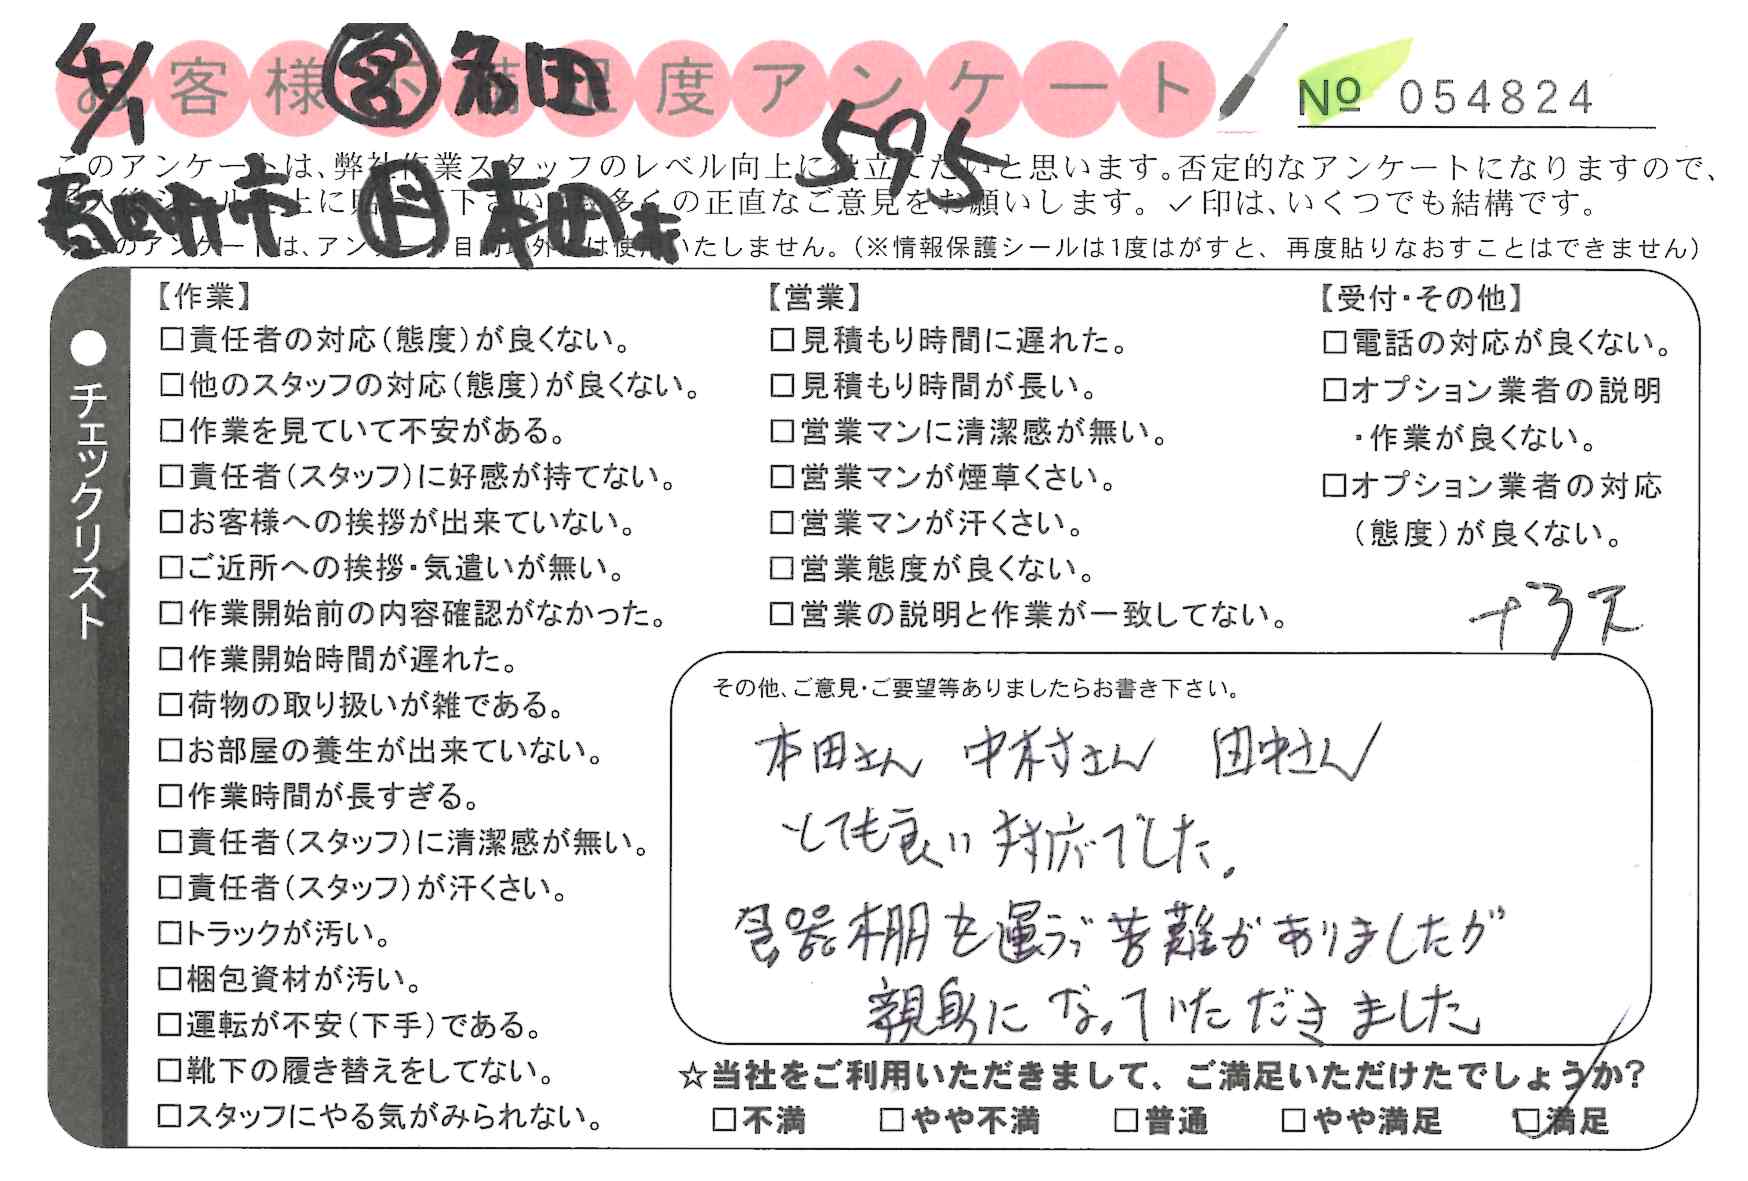 4/1 営 名田
お客様不満足度アンケート
№ 054824
595
このアンケートは、弊社作業スタッフのレベル向上に役立てたいと思います。否定的なアンケートになりますので、
多くの正直なご意見をお願いします。✓印は、いくつでも結構です。
本田
このアンケートは、アンケート目的以外には使用いたしません。（※情報保護シールは1度はがすと、再度貼りなおすことはできません）
●チェックリスト
【作業】
□責任者の対応（態度）が良くない。
□他のスタッフの対応（態度）が良くない。
□作業を見ていて不安がある。
□責任者（スタッフ）に好感が持てない。
□お客様への挨拶が出来ていない。
□ご近所への挨拶・気遣いが無い。
□作業開始前の内容確認がなかった。
□作業開始時間が遅れた。
□荷物の取り扱いが雑である。
□お部屋の養生が出来ていない。
□作業時間が長すぎる。
□責任者（スタッフ）に清潔感が無い。
□責任者（スタッフ）が汗くさい。
□トラックが汚い。
□梱包資材が汚い。
□運転が不安（下手）である。
□靴下の履き替えをしてない。
□スタッフにやる気がみられない。
【営業】
□見積もり時間に遅れた。
□見積もり時間が長い。
□営業マンに清潔感が無い。
□営業マンが煙草くさい。
□営業マンが汗くさい。
□営業態度が良くない。
□営業の説明と作業が一致してない。
【受付・その他】
□電話の対応が良くない。
□オプション業者の説明
・作業が良くない。
□オプション業者の対応
（態度）が良くない。
その他、ご意見・ご要望等ありましたらお書き下さい。
本田さん 中村さん 田中さん
とても良い対応でした。
食器棚を運ぶ苦難がありましたが
親身になっていただきました。
☆当社をご利用いただきまして、ご満足いただけたでしょうか?
□不満 □やや不満 □普通 □やや満足 □満足